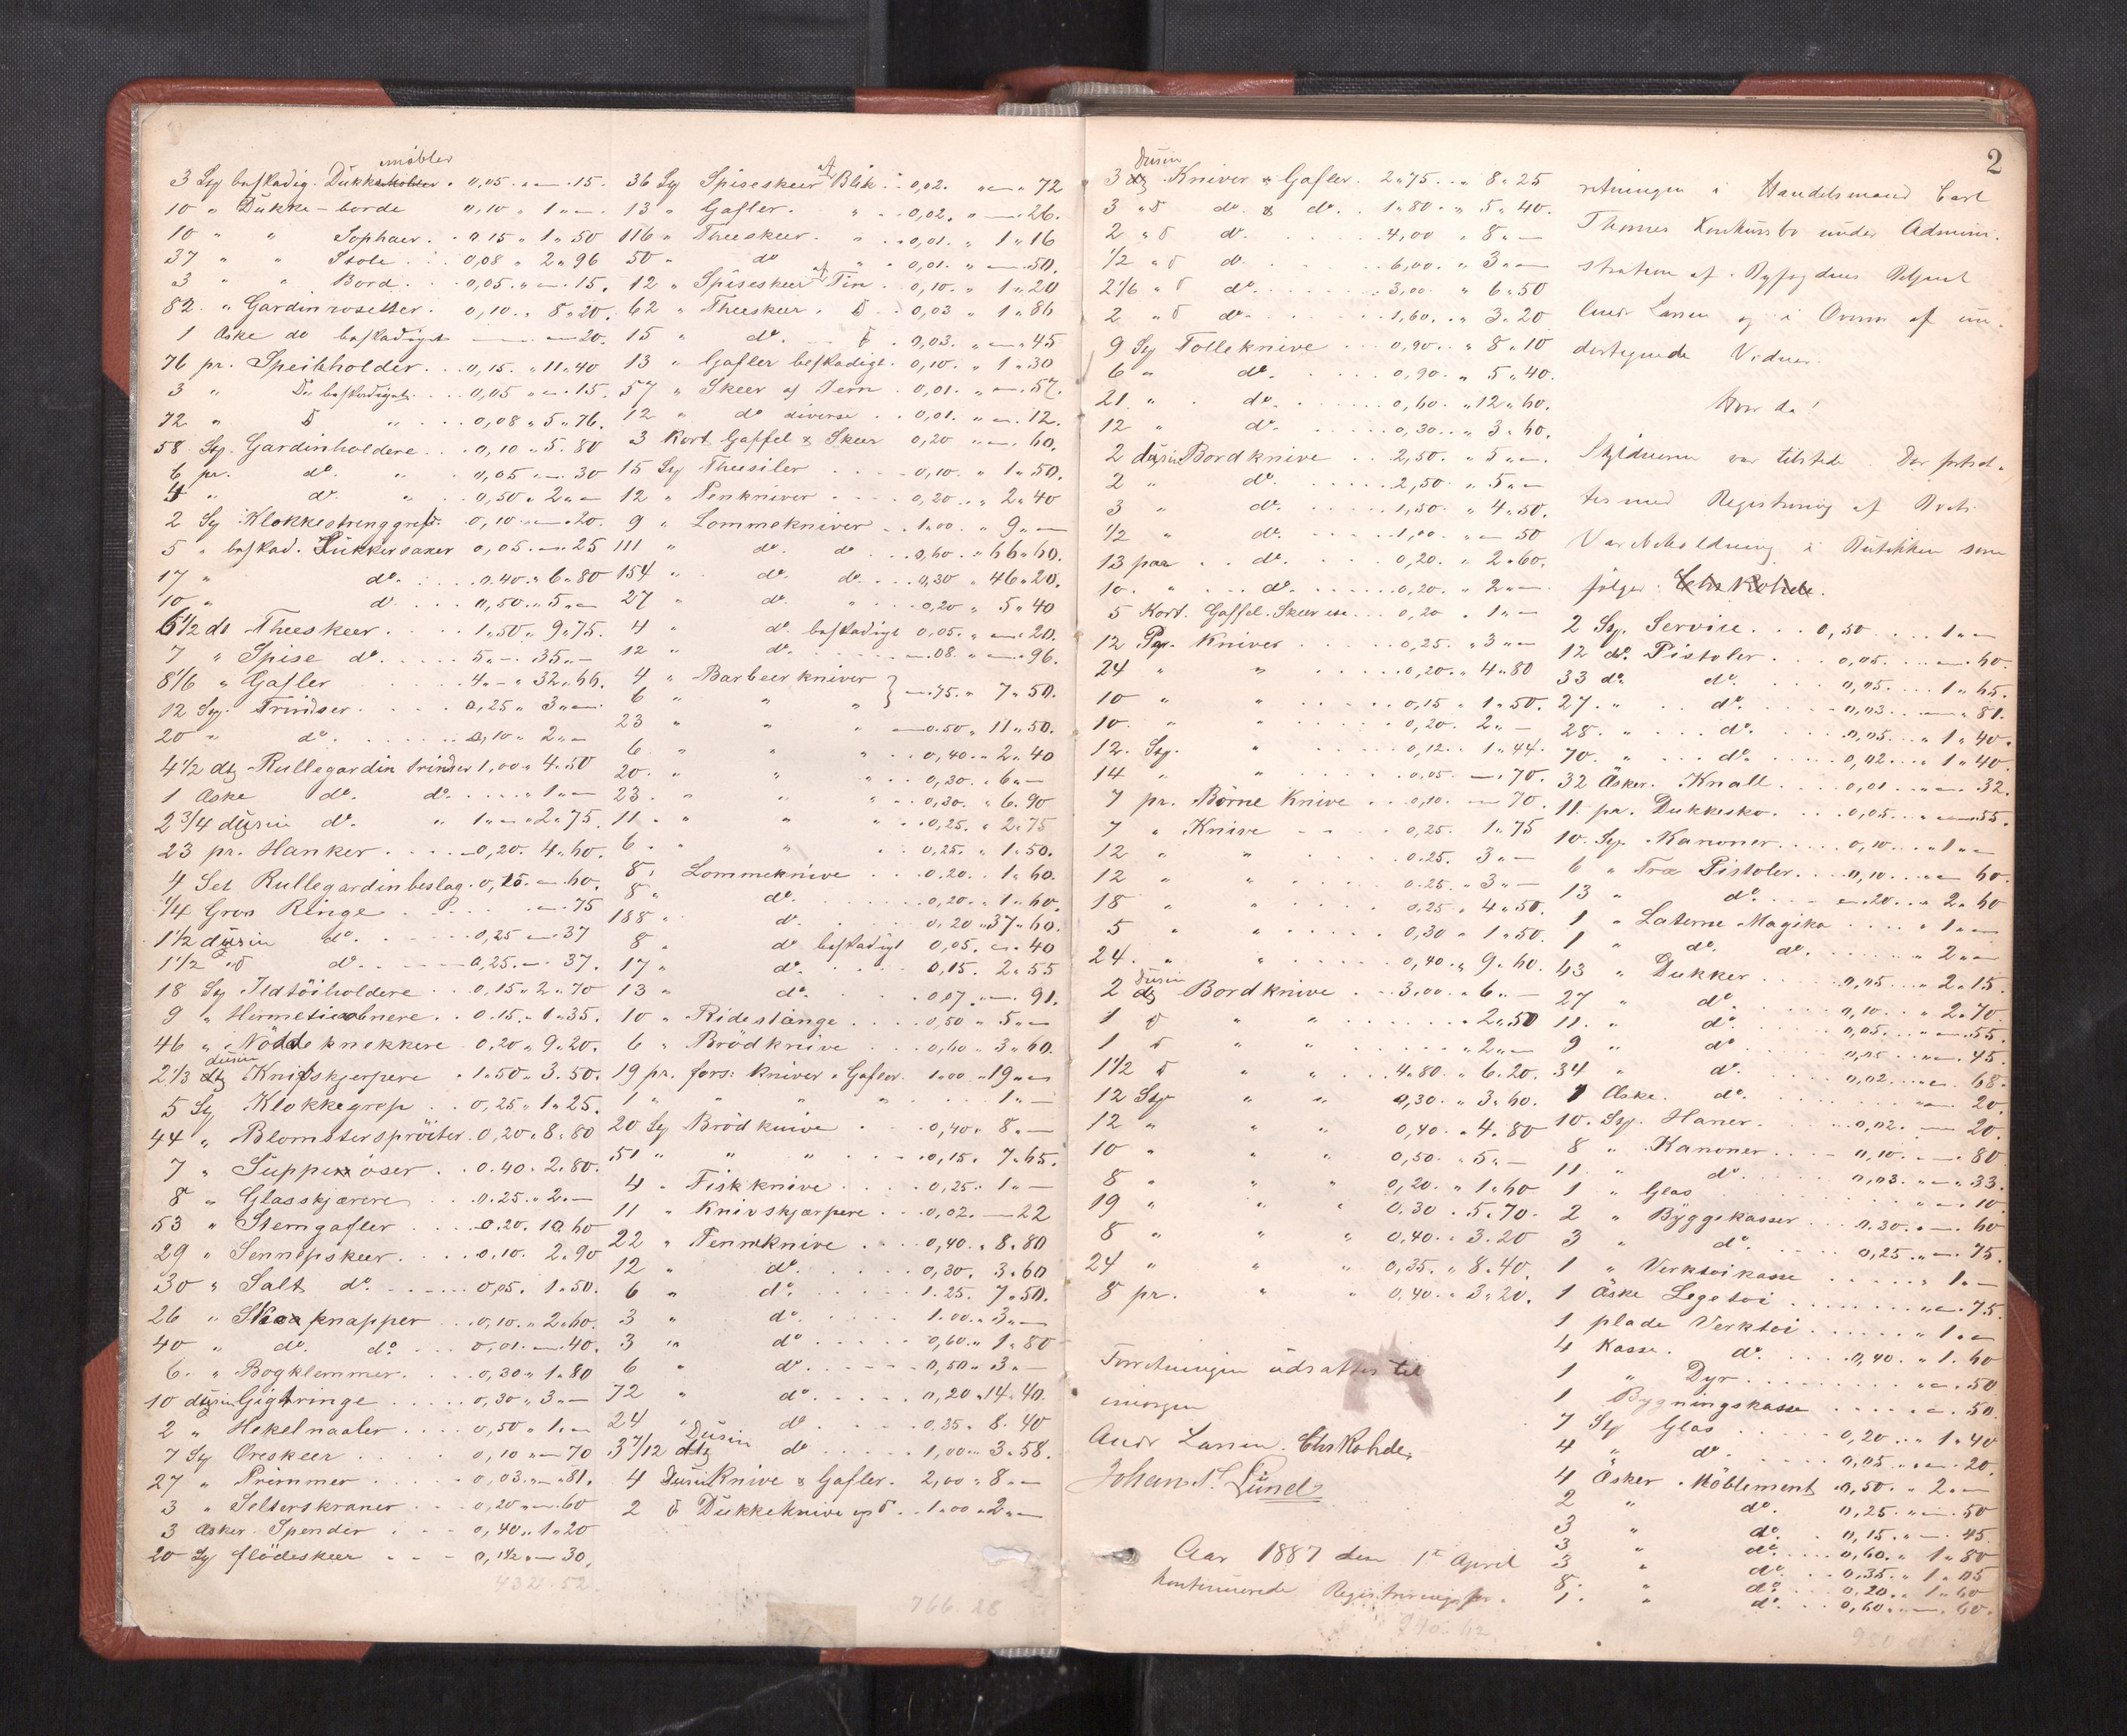 møbler
3 Sty beskadig. Dukkemøbler . 0,05 . " — . 15.
10 " Dukke-borde " 0,10 " 1 " —
10 " " Sophaer . . 0 15 " 1 " 50
37 " " Stole . . . 0,08 " 2 " 96
3 " " Bord . . . 0,05 . " — . 15.
82 . " Gardinrosetter . 0,10 . " 8 " 20.
1 Æske do beskadiget — — 20.
76 pr. Speilholder . . 0,15. " 11 " 40
3 " Do beskadiget . . 0,05 " — . 15.
72 " do " . . 0,08 " 5 " 76.
58 Sty. Gardinholdere . . 0,10 " 5. 80
6 pr. do. " . 0,05 " — 30
4 " do. " . 0,50 " 2 " —
2 Sty Klokkestrenggreb. . 0,10 — . 20.
5 " beskad. Sukkersaxer 0,05. — " 25
17 " do. . . . . 0.40. " 6 " 80
10 " do . . . 0,50. " 5 " —
6 1/2 ds Theeskeer . . . . 1 " 50 " 9 " 75.
7 " Spise do. . . . . 5 " — . 35 " —
8 1/6 " Gafler . . . . . 4. — " 32. 66.
12 Sty. Trindser . . . . 0,25 " 3 " —
20 " do. . . . . . 0,10 " 2 " —
4 1/2 dtz Rullegardin trindser 1,00 " 4. 50
1 Æske do. do. . . . . " 1 " —
2 3/4 dusin do. " 1 " — " 2 " 75.
23 pr. Hanker . . . . 0,20. 4 " 60.
4 Set Rullegardinbeslag . 0,15. — . 60.
1/4 Gros Ringe . . . . . . — . 75
1 1/2 dusin do. . . . . . 0,25 — " 37
1 1/2 " do. . . . . 0,25. — 37.
18 Sty Ildtöiholdere . . 0,15 " 2 " 70
9 " Hermetikaabnere . . 0.15. " 1 " 35.
46 " Nöddeknekkere . 0.20 " 9 " 20.
dusin
2 1/3 dtz Knifskjerpere . 1 " 50 " 3. 50.
5 Sty Klokkegrep . . 0,25 " 1 " 25.
44 " Blomstersprøiter . 0,20 " 8 " 80
7 " Suppeøser . . 0.40. 2 " 80.
8 " Glasskjærere . . 0.25. " 2 " —
53 " Stemgafler . . . 0.20. 10 60
29 " Sennepskeer . . . . 0.10. 2 " 90
30 " Salt do. . . . . . 0,05. 1 " 50.
26 " Skoknapper . . 0,10. " 2 " 60.
40 " do. do. . . 0,01. — . 40.
6. " Bogklemmer . . . 0,30 " 1 " 80
10 dusin Gigtringe . . . . 0,30 " 3 " —
2 " Hekelnaaler . . . 0,50 " 1 " —
7 Sty Øreskeer . . . . . 0,10 " — 70
27 " Primmer . . . . 0,03. " — " 81.
3 " Selterskraner . . . 0,20 " — . 60
3 Æsker Spender . . . 0,40 " 1 " 20
20 Sty flödeskeer . . . 0,1 1/2 " — 30.
432. 52.
36 Sty Spiseskeer af Blik . . 0,02. " — " 72
13 " Gafler . " . . 0,02. " — . 26.
116 " Theeskeer . " . . 0,01. " 1 " 16
50 " do " . 0,01. " — . 50.
12 " Spiseskeer af Tin . . 0,10. " 1 " 20
62 " Theeskeer . do . . 0,03 " 1 " 86
15 " do . . do . 0,03. " — " 45
13 " Gafler beskadigt. 0,10. " 1 " 30
57 " Skeer af Jern . 0,01. " — . 57.
12 " do diverse . . 0,01. " — . 12.
3 Kort Gaffel & Skeer 0,20 " — . 60.
15 Sty Theesiler . . . . 0,10. " 1 " 50.
12 " Penkniver . . . . 0,20. . " 2 " 40
9 " Lommekniver . . 1 " 00. " 9 " —
111 " do. do . . . 0,60. " 66 " 60.
154 " do. do. . . . 0,30 " 46 " 20.
27 " do. " . . . 0,20 " 5 " 40
4 " do. beskadigt 0,05. " — . 20.
12 " do. . . . . . — .08. " — . 96.
4 " Barbeerkniver
6 " " " } — .75. " 7 " 50.
23 " " " — 0.50 " 11 " 50.
6 " " " . . 0,40. " 2 " 40
20. " " " . . 0,30. . 6 " —
23. " " " . . 0,30. " 6. 90
11. " " " . . 0,25. " 2 " 75
6. " " . . 0,25. " 1. 50.
8. Lommeknive . . . 0.20. . 1 " 60.
8 " do. . . . . 0,20. " 1 " 60.
188 " do. . . . . 0,20 " 37 " 60.
8 " do beskadigt 0,05. — . 40
17 " do. . . . . 0,15. 2 " 55
13 " do. . . . . 0,07. " — . 91.
10 " Ridestænge . . . . 0,50 " 5 " —
6 " Brödknive . . . . 0,60 . 3 " 60.
19 pr. fors: kniver " Gafler. 1 " 00. " 19 " —
1 " " " " . . . . . 1 " —
20 Sty Brödknive . . . 0,40 " 8. —
51 " " " . . . 0,15. 7 " 65.
4 " Fiskknive . . . . 0,25. 1 " —
11 " Knivskjærpere . . . 0,02. — 22
22 " Pennknive . . . 0,40. " 8 " 80
12 " do. . . . . . 0,30. 3 " 60
6 " do. . . . . . 1. 25. 7 " 50.
3 " do. . . . . . 1.00. " 3 " —
3 " do . . . . . 0,60. " 1 " 80
6 " do. . . . . . 0,50 " 3 " —
72 " do . . . . . 0,20 " 14 " 40.
24 " do . . . . . 0,35. " 8. 40
Dusin
3 7/12 dtz do . . . . . 1,00 " 3 " 58.
4 Dusin Knive & Gafler . 2,00 " 8 " —
2 do Dukkeknive og do . . 1 " 00 " 2 " —
766. 28
2
Dusin
3 dtz Kniver & Gafler . 2 " 75 . . " 8 " 25
3 " do do. & do. . 1 " 80 . " 5 " 40.
2 " do do. . . . . . 4,00 " 8 " —
1/2 " do do. . . . . . 6,00. " 3 " —
2 1/6 " do do. . . . . . 3,00. " 6 " 50
2 " do do. . . . . . 1,60. . " 3 " 20
9 Sty Tolleknive . . . 0,90. . " 8 " 10
6 " do. . . . . 0,90. " 5 " 40.
21 " . do. . . . . . 0,60. " 12 " 60.
12 " do. . . . . . 0,30. . " 3 " 60.
2 dusin Bordknive . . 2,50. " 5 " —
2 " do. . . . . . 2,50. " 5 " —
3 " do. . . . . . 1,50. " 4 " 50.
1/2 " do. . . . . . 1,00. " — 50
13 par . . do. . . . . 0,20. " 2 " 60.
10. " . . do. . . . . . 0,20. . " 2 " —
5 Kort. Gaffel. Skeer . . . 0,20 " 1 " —
12 Pap. Kniver . . . . . 0,25. " 3 " —
24 " " . . . . . 0,20. " 4 " 80
10 " " . . . . . 0,15 " 1 " 50.
10. " " . . . . . 0,20. 2 " —
12. Sty. " . . . . . 0,12. . 1 " 44.
14 " " . . . . . 0.05. — . 70.
7 pr. Börne Knive . . . 0,10. — 70.
7 " Knive . . . . 0,25. 1 " 75
12 " " 0.25. 3 " —
12 " " 0.25. " 3 " —
18 " " 0,25 " 4 " 50.
5 " " 0,30 " 1 " 50.
24. " " 0,40. " 9 " 60.
dusin
2 dtz Bordknive . . . 3,00. " 6. —
1 do " " . . . . . . " 2 " 50
1 do " " . . . . . . " 2 " —
1 1/2 do " " 4 " 80. " 6. 20.
12 Sty " " 0,30. " 3 " 60.
12 " " " 0,40. " 4. 80
10 " " " 0,50. " 5 " —
8 " " " 0,20. " 1 " 60
19 " " " 0.30 " 5. 70.
8 " " " 0,40. . 3. 20
24 " " " 0,35. " 8. 40.
8 pr. " " 0,40. " 3 " 20.
Forretningen udsattes til
imorgen
Andr Larsen. Chr Rohde.
Johan Lund
Aar 1887 den 1t April
kontinuerede Registreringsfor.
940. 62
retningen i Handelsmand Carl
Thomes Konkursbo under Admini-
stration af Byfogdens Betjent
Andr Larsen og i Overvær af un-
dertegnede Vidner.
Hvor da!
Skyldneren var tilstede. Der fortsat-
tes med Registrering af Boets
Varebeholdning i Butikken som
følger: Chr Rohde.
2 Sty. Servise . . . 0,50 . . . 1 " —
12 do. Pistoler . . . 0,05. . . . — . 60.
33 do. do. . . . 0,05. . . . 1 " 65.
27. " . . do. . . . 0,03. . . — " 81.
28. " . . . do. . . . 0,05. . " 1 " 40.
70. " . . . do. . . . 0,02. . . . 1 " 40.
32 Æsker Knall . . . . 0,01 . . " — . 32.
11 pr. Dukkesko. . . . 0,05. . " — . 55.
10. Sty. Kanoner . . . . . 0,10. . . " 1 " —
6 " Træ Pistoler . . . . 0,10. . . — 60.
13 " do. . . — . 20. . " 2 " 60
1 " Laterne Magika . . . . " 1 " —
1 " do. do. . . . . " 2 " —
43 " Dukker . . . . . 0,05. . " 2 " 15.
27 " do. . . . . 0,10. . " 2 " 70.
11. " do. . . . . 0,05. . " — . 55.
9 " do . . . . 0,05. . " — . 45.
34 " do. . . . . 0,02. . " — . 68.
1 Æske. do. . . . . . . " — 20.
10. Sty. Haner . . . . . 0,02. . — 20.
8 " Kanoner . . . . 0,10. . — . 80
11. " do. . . . . 0,03. " — " 33.
1 " Glas . . . . . . . . " — . 10.
2 " Byggekasser . . . 0.30. " — . 60
3 " do. . . . . 0,25. " — . 75.
1 " Verktøikasse . . . . . " 1. —
1 Æske Legetøi . . . . . . . " — . 75.
1 plade Verktøi . . . . . . " 1. —
4 Kasse. do. . . . . . 0,40. " 1. 60
1 " Dyr . . . . . . . . — . 50
1 Bygningskasse . . . . . — . 50.
7 Sty Glas . . . . . 0,20 . . " 1 " 40
4 " do . . . . 0,05. " — . 20.
4 Æsker Möblement . 0,50. . " 2 " —
2 " do. 0,25. " — . 50
3 " do. . 0,15. " — . 45.
3 " do. . . . 0,60. " 1 " 80
3 " do. . . . 0,35. " 1 " 05
8. " do. . . . 0,20. . 1 " 60
1. " do. . . 0,60. " — . 60.